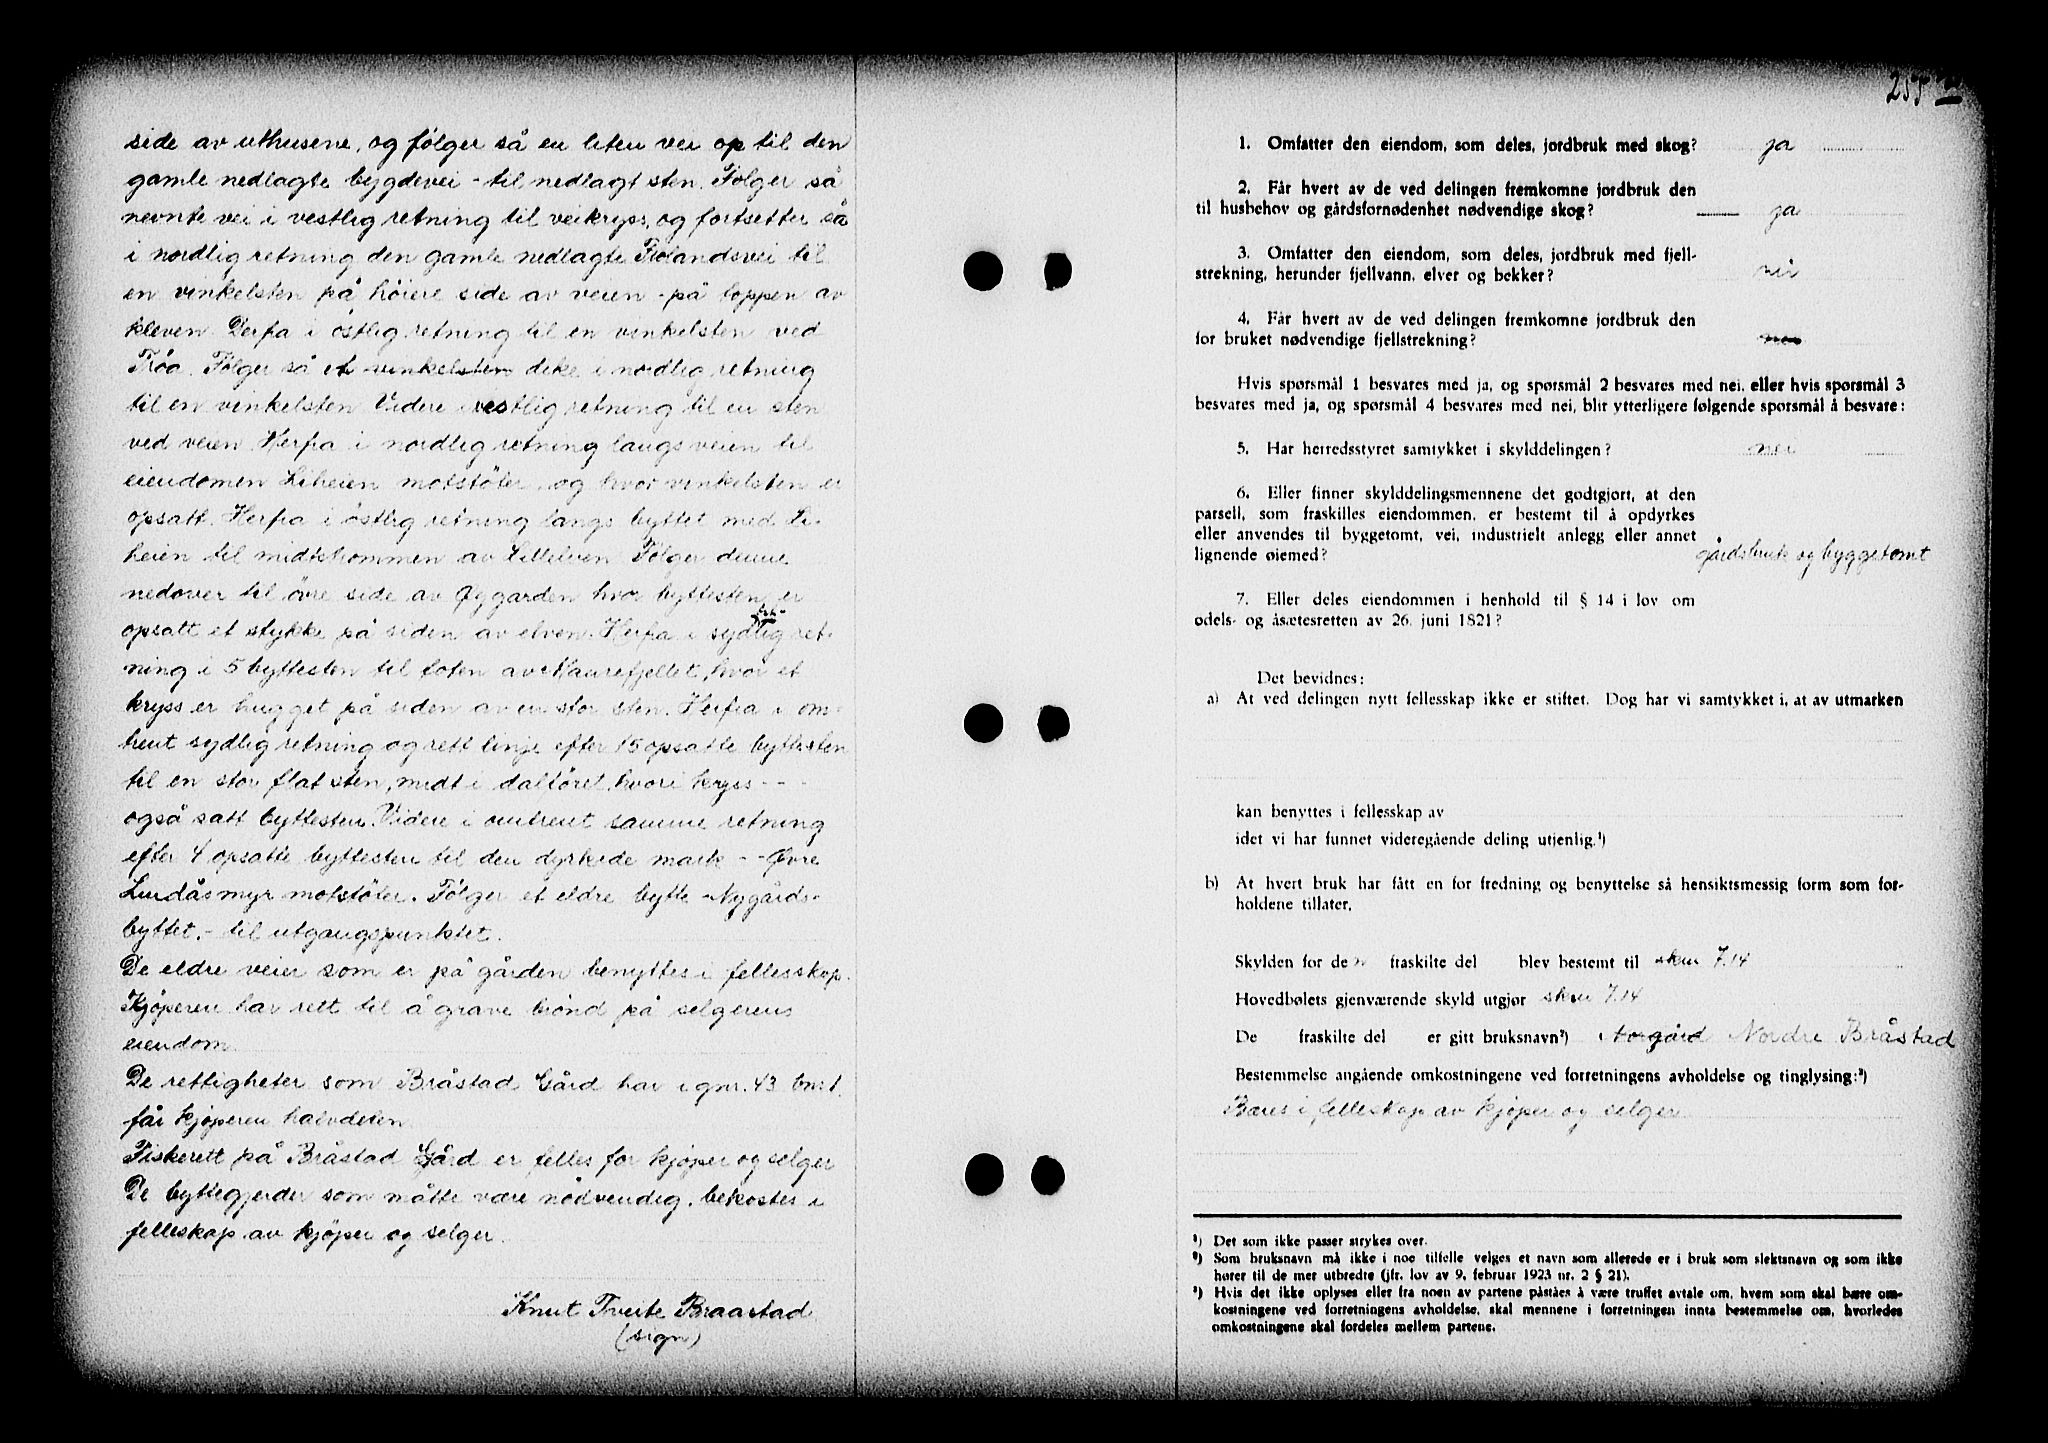 side av uthusene, og følger så en liten vei op til den
gamle nedlagte bygdevei - til nedlagt sten. Følger så
nevnte vei i vestlig retning til veikryss, og fortsetter så
i nordlig retning den gamle nedlagte Frolandsvei til
en vinkelsten på høiere side av veien - på toppen av
kleven. Derfra i østlig retning til en vinkelsten ved
Trøa. Følger så vinkelsten dike i nordlig retning
til en vinkelsten. Videre i vestlig retning til en sten
ved veien. Herfra i nordlig retning langs veien til
eiendomen Liheien motstøter, og hvor vinkelsten er
opsatt. Herfra i østlig retning langs byttet med Li-
heien til midtstrømmen av Lilleelven. Følger denne
nedover til øvre side av Øygarden hvor byttesten er
opsatt et stykke på siden av elven. Herfra i sydlig ret-
ning i 5 byttesten til foten av Maurefjellet, hvor et
kryss er hugget på siden av en stor sten. Herfra i om-
trent sydlig retning og rett linje efter 15 opsatte byttesten
til en stor flat sten, midt i daltøret, hvori kryss - -
også satt byttesten. Videre i omtrent samme retning
efter 4 opsatte byttesten til den dyrkede mark - - Øvre
Lindåsmyr motstøter. Følger et eldre bytte - Nygårds-
byttet, - til utgangspunktet.
De eldre veier som er på gården benyttes i fellesskap.
Kjøperen har rett til å grave brønd på selgerens
eiendom.
De rettigheter som Bråstad Gård har i gnr. 43 bnr. 1.
får kjøperen halvdelen.
Fiskerett på Bråstad Gård er felles for kjøper og selger
De byttegjerder som måtte være nødvendig, bekostes i
felleskap av kjøper og selger.
Knut Tveite Braastad
(sign)
255
1. Omfatter den eiendom, som deles, jordbruk med skog? ja
2. Får hvert av de ved delingen fremkomne jordbruk den
til husbehov og gårdsfornødenhet nødvendige skog? ja
3. Omfatter den eiendom, som deles, jordbruk med fjell-
strekning, herunder fjellvann, elver og bekker? nei
4. Får hvert av de ved delingen fremkomne jordbruk den
for bruket nødvendige fjellstrekning? nei
Hvis spørsmål 1 besvares med ja, og spørsmål 2 besvares med nei, eller hvis spørsmål 3
besvares med ja, og spørsmål 4 besvares med nei, blir ytterligere følgende spørsmål å besvare:
5. Har herredsstyret samtykket i skylddelingen? nei
6. Eller finner skylddelingsmennene det godtgjort, at den
parsell, som fraskilles eiendommen, er bestemt til å opdyrkes
eller anvendes til byggetomt, vei, industrielt anlegg eller annet
lignende øiemed? gårdsbruk og byggetomt
7. Eller deles eiendommen i henhold til § 14 i lov om
odels- og åsætesretten av 26. juni 1821?
Det bevidnes:
a) At ved delingen nytt fellesskap ikke er stiftet. Dog har vi samtykket i, at av utmarken
kan benyttes i fellesskap av
idet vi har funnet videregående deling utjenlig.¹)
b) At hvert bruk har fått en for fredning og benyttelse så hensiktsmessig form som for-
holdene tillater.
Skylden for den fraskilte del blev bestemt til skm 7.14
Hovedbølets gjenværende skyld utgjør skm 7.14
De fraskilte del er gitt bruksnavn²) Norgård Nordre Bråstad
Bestemmelse angående omkostningene ved forretningens avholdelse og tinglysing:³)
Bæres i felleskap av kjøper og selger
¹) Det som ikke passer strykes over.
²) Som bruksnavn må ikke i noe tilfelle velges et navn som allerede er i bruk som slektsnavn og som ikke
hører til de mer utbredte (jfr. lov av 9. februar 1923 nr. 2 § 21).
³) Hvis det ikke oplyses eller fra noen av partene påståes å være truffet avtale om, hvem som skal bære om-
kostningene ved forretningens avholdelse, skal mennene i forretningen innta bestemmelse om, hvorledes
omkostningene skal fordeles mellem partene.